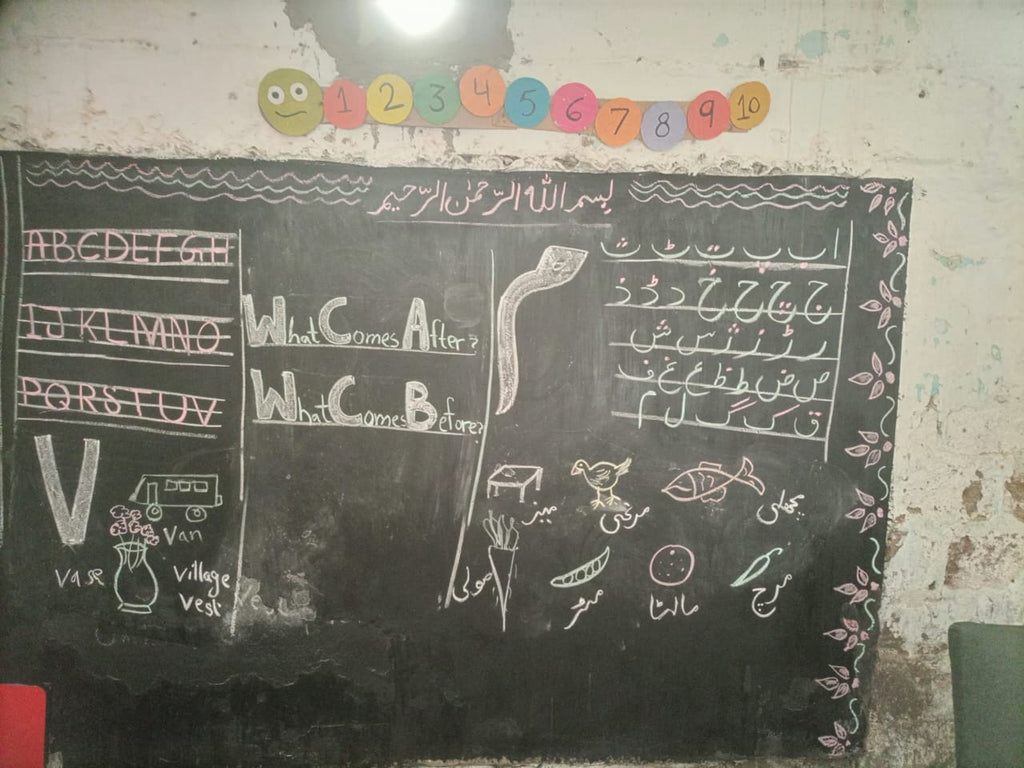 1 2 3 4 5 6 7 8 9 10
بسم اللہ الرّحمٰن الرّحیم
ABCDEFGH
IJKLMNO
PQRSTUV
V
Van
Vase
Village
Vest
What Comes After?
What Comes Before?
م
ا ب پ ت ٹ ث
ج چ ح خ د ڈ ذ
ر ڑ ز ژ س ش
ص ض ط ظ ع غ ف
ق ک گ ل م
میز
مرغی
مچھلی
مولی
مٹر
مالٹا
مرچ